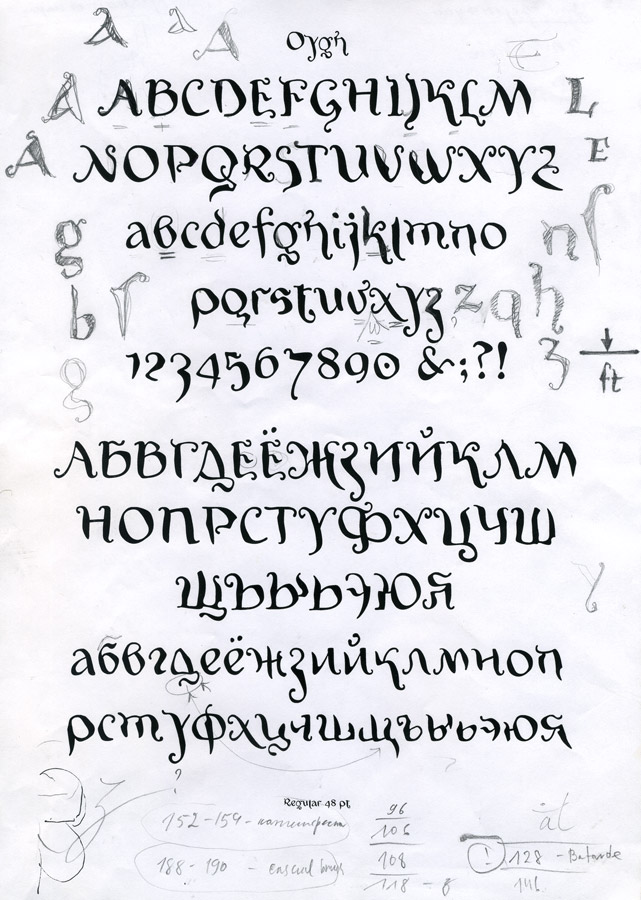 A a A
Oygh
A ABCDEFGHIJKLM L
A NOPQRSTUVWXYZ E
g abcdefghijklmno n ſ
b ſ pqrstuvxyz z a h
g 1234567890 &;?! ʒ ft
АБВГДЕЁЖЗИЙКЛМ
НОПРСТУФХЦЧШ
ЩЪЫЬЭЮЯ
абвгдеёжзийклмноп
рстуфхцчшщъыьэюя
?
Regular 48 pt.
152-154-
96
106
188-190 -
108
118 - 8
at
! 128 - Batarde
146